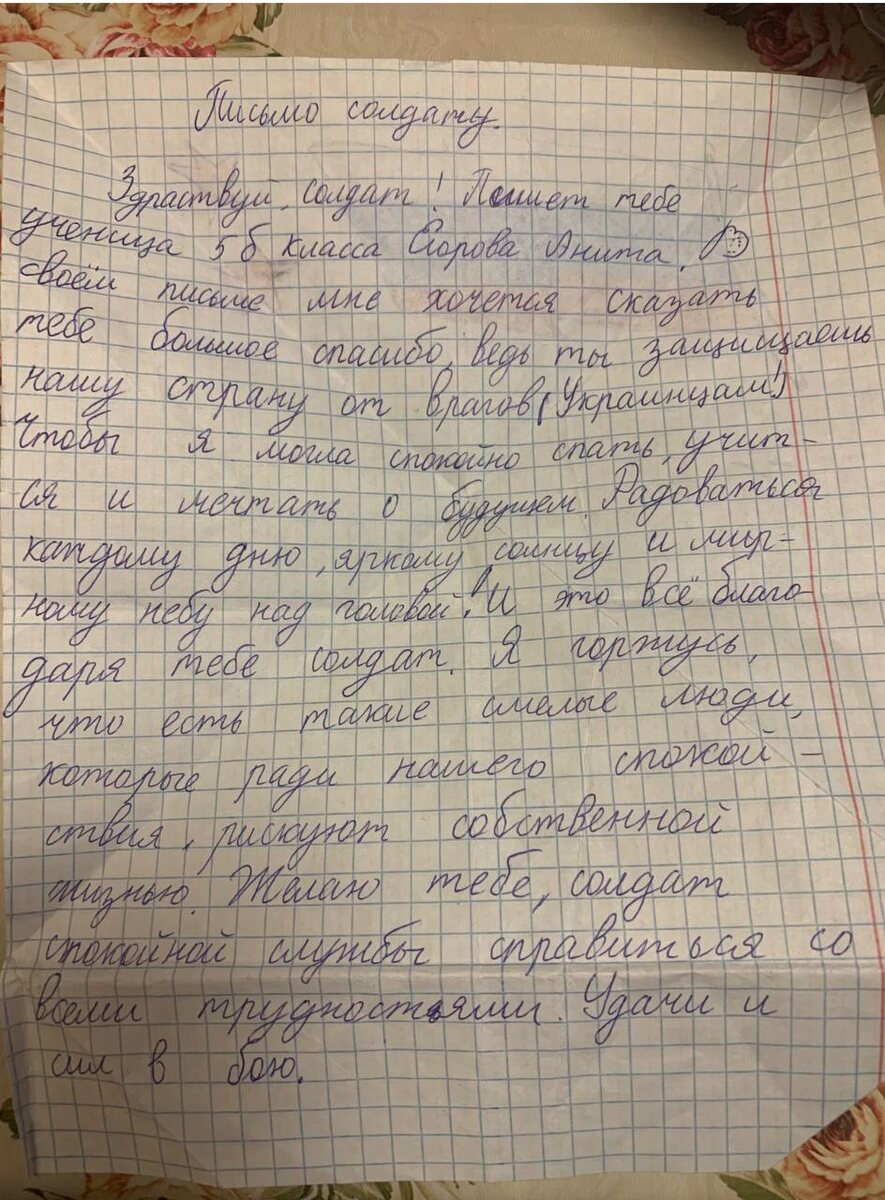 Письмо солдату.
Здраствуй, солдат! Пишет тебе
ученица 5 б класса Егорова Анита. В
своём письме мне хочется сказать
тебе большое спасибо, ведь ты защищаешь
нашу страну от врагов (Украинцам!)
Чтобы я могла спокойно спать, учит-
ся и мечтать о будущем. Радоваться
каждому дню, яркому солнцу и мир-
ному небу над головой! И это всё благо-
даря тебе солдат. Я горжусь,
что есть такие смелые люди,
которые ради нашего спокой-
ствия, рискуют собственной
жизнью. Желаю тебе, солдат
спокойной службы справиться со
всеми трудностями. Удачи и
сил в бою.